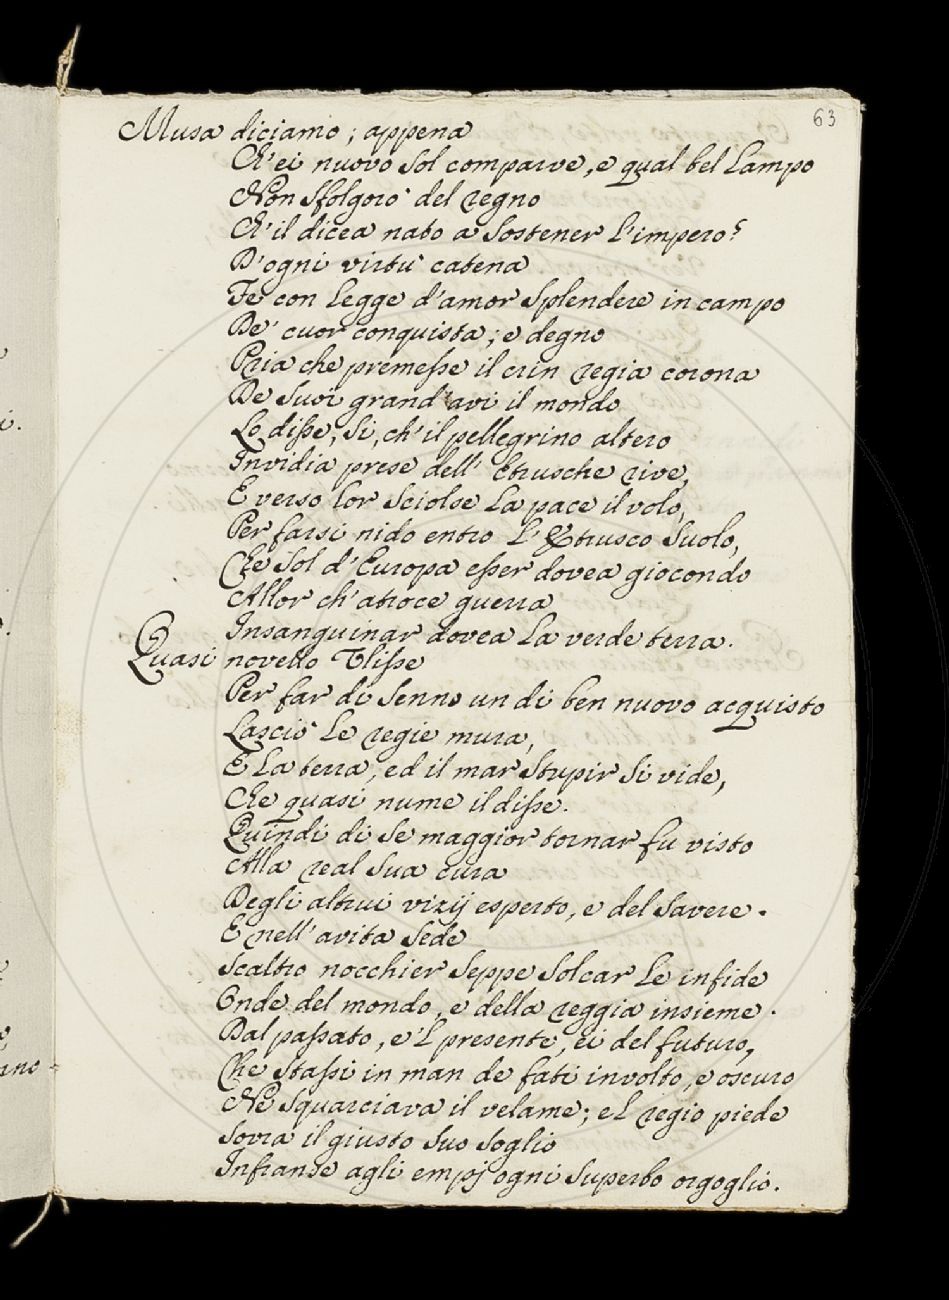 63
Musa diciamo; appena
Ch'ei nuovo Sol comparve, e qual bel Lampo
Non Sfolgorò del regno
Ch'il dicea nato a Sostener L'impero?
D'ogni virtù catena
Fe con Legge d'amor Splendere in campo
De' cuor conquista; e degno
Pria che premesse il crin regia corona
De Suoi grand'avi il mondo
Lo disse, Si, ch'il pellegrino altero
Invidia prese dell' Etrusche rive,
E verso lor Sciolse La pace il volo,
Per farsi nido entro L'Etrusco Suolo,
Che Sol d'Europa esser dovea giocondo
Allor ch'atroce guerra
Insanguinar dovea La verde terra.
Quasi novello Ulisse
Per far di Senno un di ben nuovo acquisto
Lasciò Le regie mura,
E La terra, ed il mar Stupir Si vide,
Che quasi nume il disse.
Quindi di Se maggior tornar fu visto
Alla real Sua cura
Degli altrui vizij esperto, e del Savere.
E nell'avita Sede
Scaltro nocchier Seppe Solcar Le infide
Onde del mondo, e della reggia insieme.
Dal passato, e'l presente, ei del futuro,
Che Stassi in man de fati involto, e oscuro
Ne Squarciava il velame; el regio piede
Sovra il giusto Suo Soglio
Infranse agli empj ogni Superbo orgoglio.